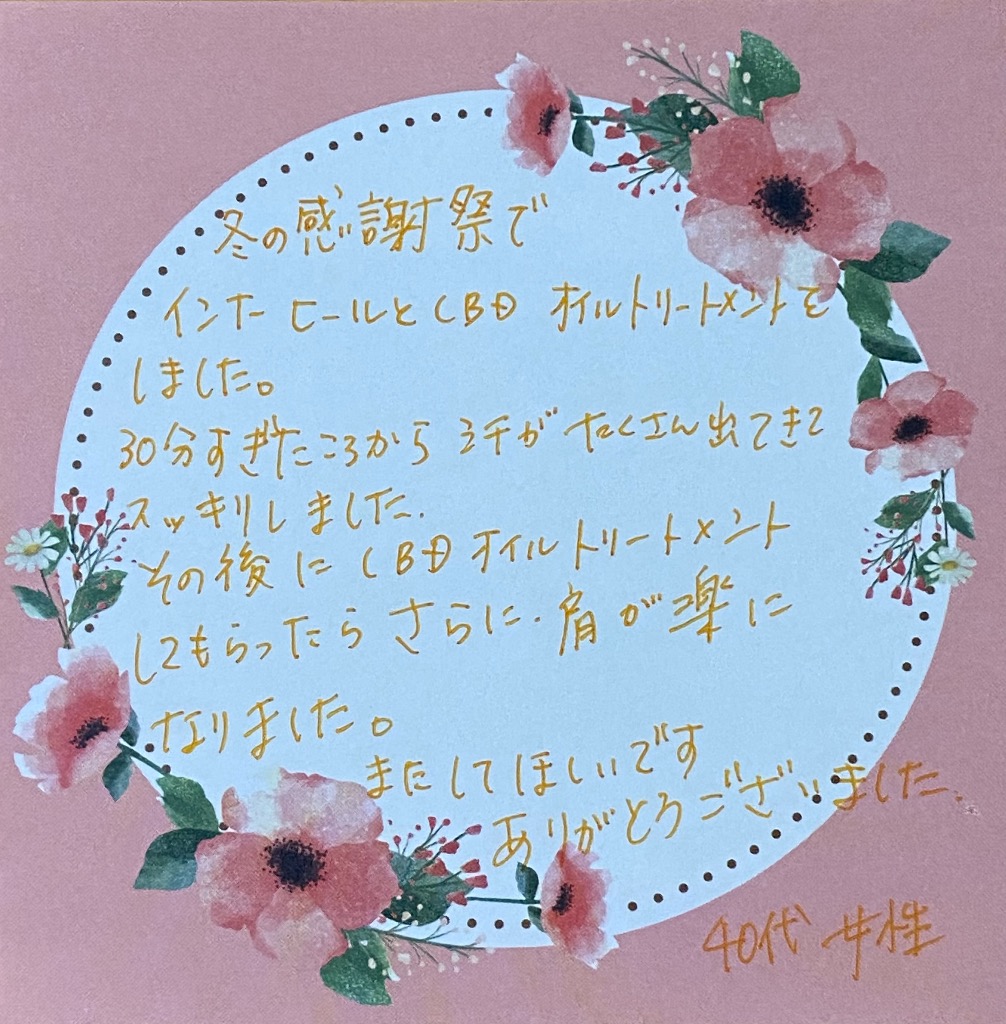 冬の感謝祭で
インナーヒールとCBDオイルトリートメントを
しました。
30分すぎたころから汗がたくさん出てきて
スッキリしました.
その後にCBDオイルトリートメント
してもらったらさらに.肩が楽に
なりました。
またしてほしいです
ありがとうございました.
40代 女性